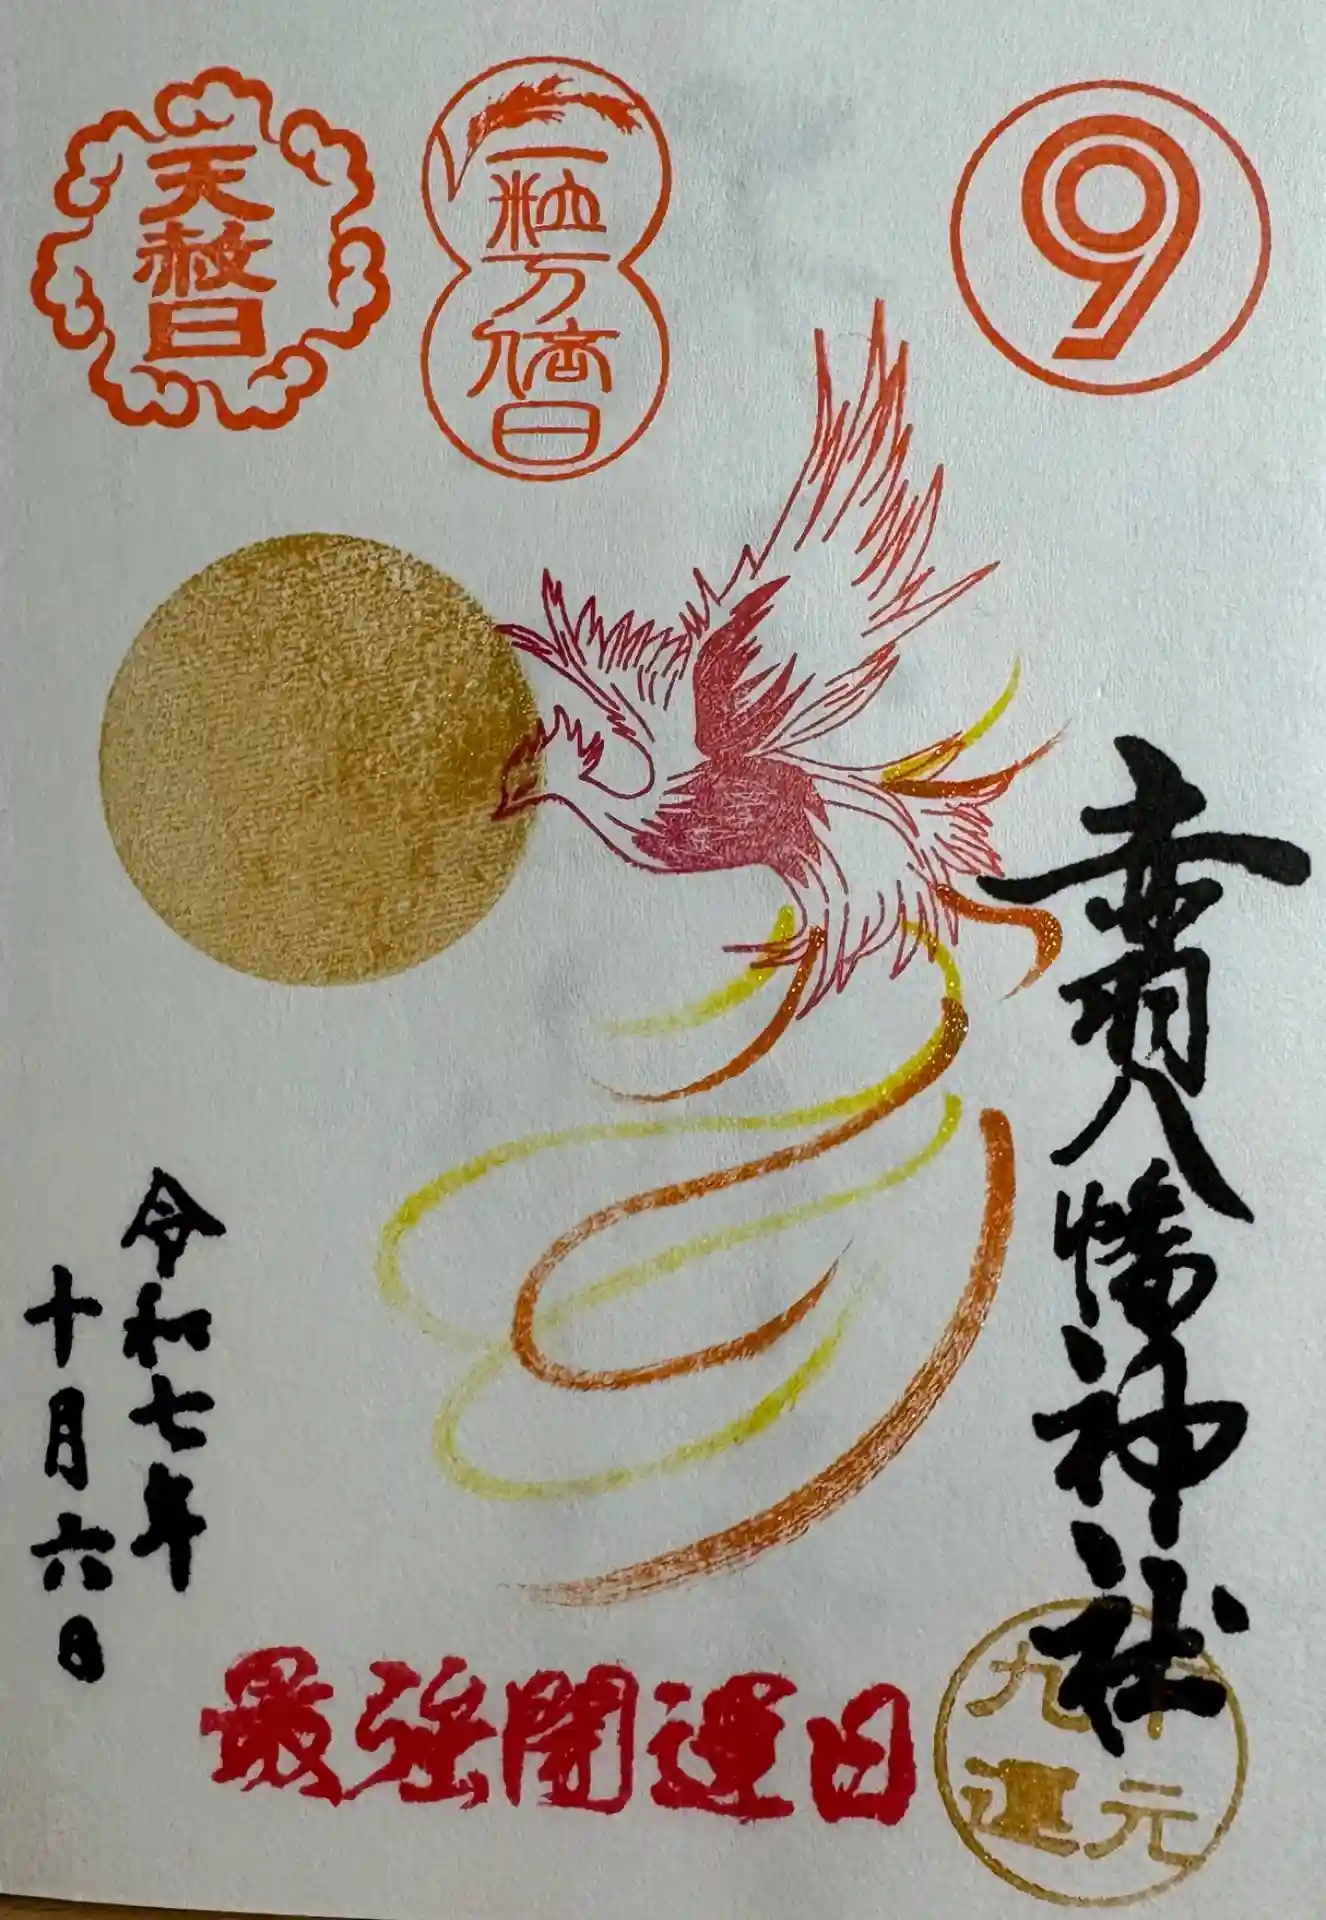 9
一粒万倍日
天赦日
赤羽八幡神社
令和七年
十月六日
最強開運日
元
九運